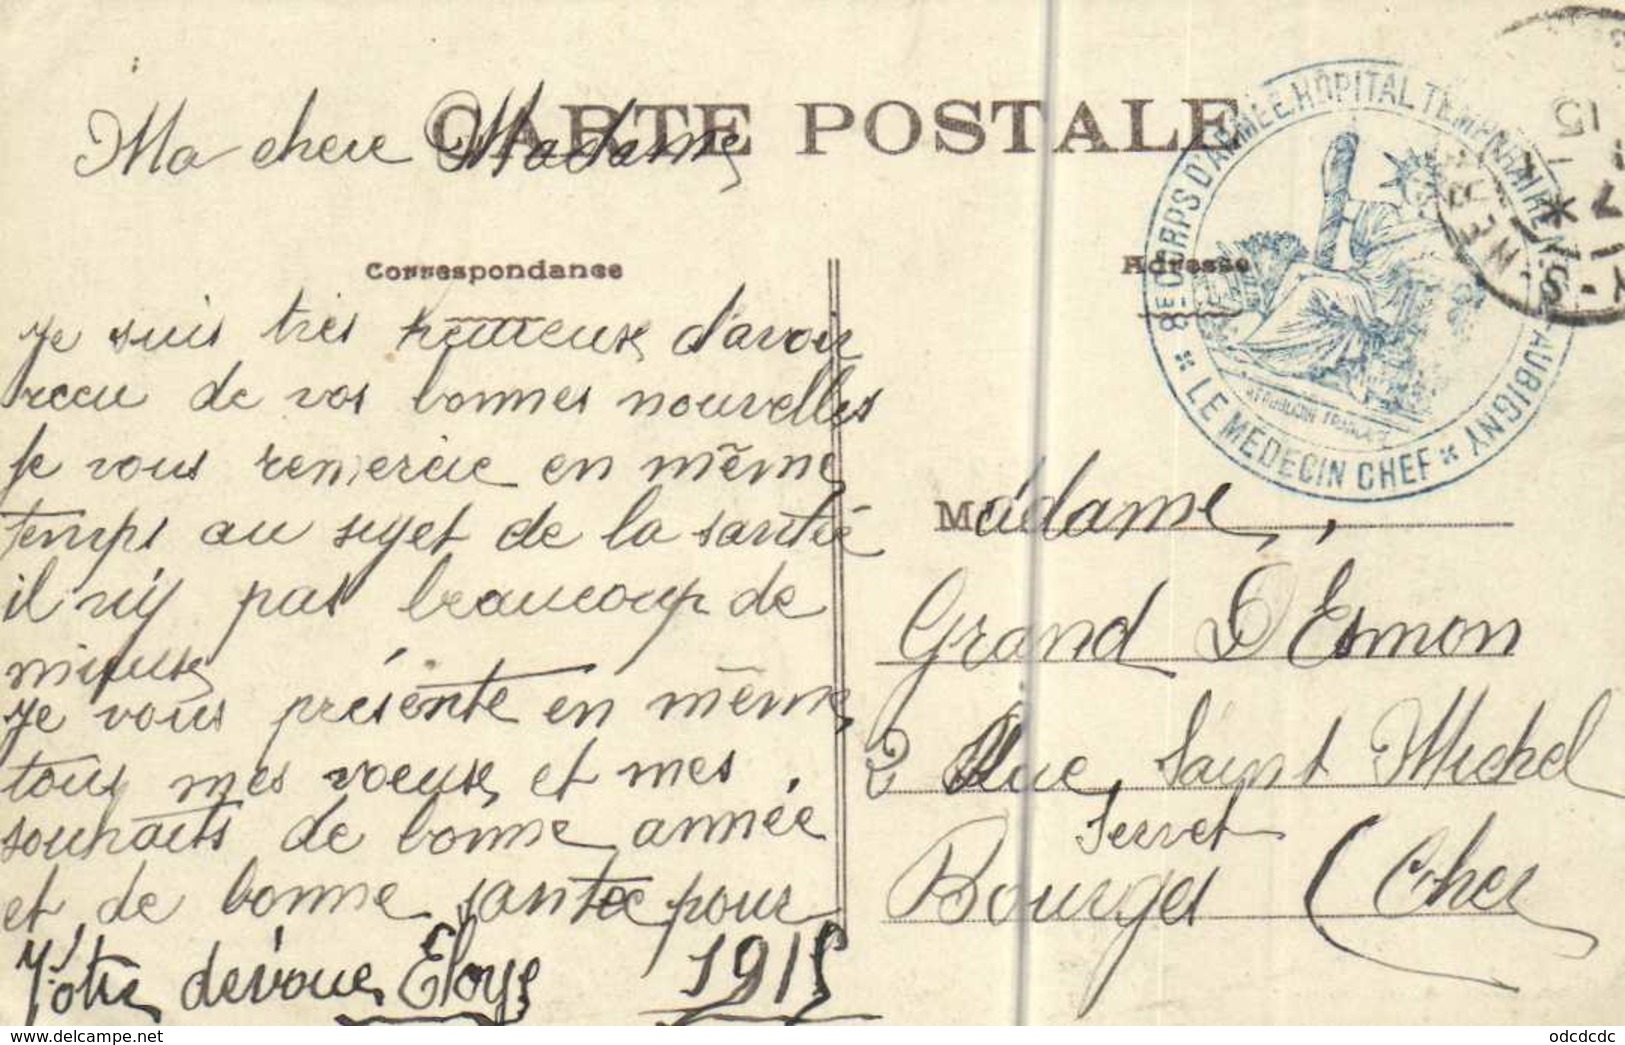 CARTE POSTALE
Ma chere Madame
Correspondance
je suis tres heureux d'avoir
recu de vos bonnes nouvelles
Je vous remercie en même
temps au sujet de la santée
il n'y pas beaucoup de
mieux
je vous présente en même
tous mes voeux et mes
souhaits de bonne année
et de bonne santée pour
1915
Vôtre dévoue Eloys
Adresse
8E CORPS D'ARMÉE. HÔPITAL TEMPORAIRE
AUBIGNY
* LE MÉDECIN CHEF *
REPUBLIQUE FRANÇAISE
15
Madame,
Grand D'Esmon
2 Rue, Saint Michel
Servet
Bourges (Cher
odcdcdc